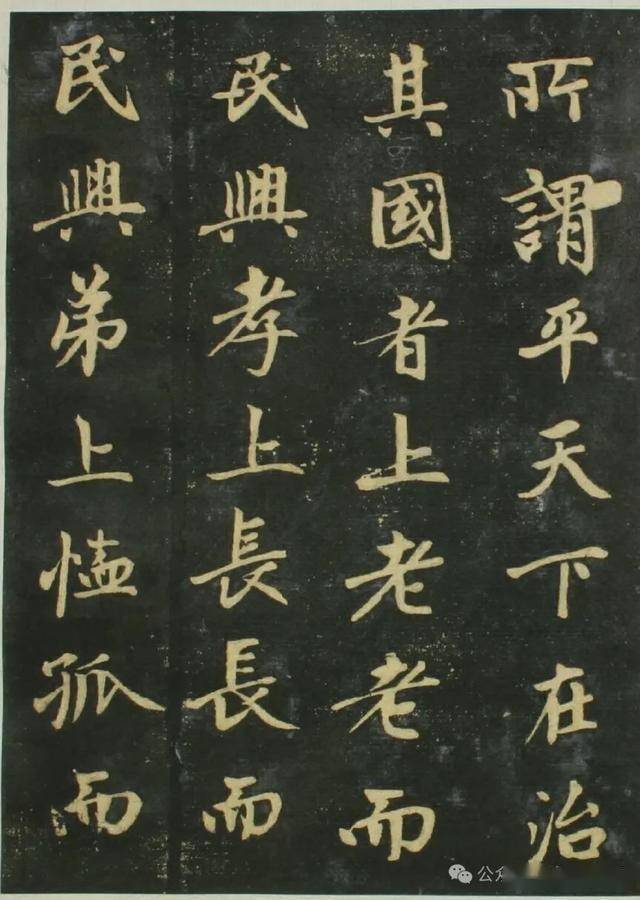 所謂平天下在治
其國者上老老而
民興孝上長長而
民興弟上恤孤而
公众